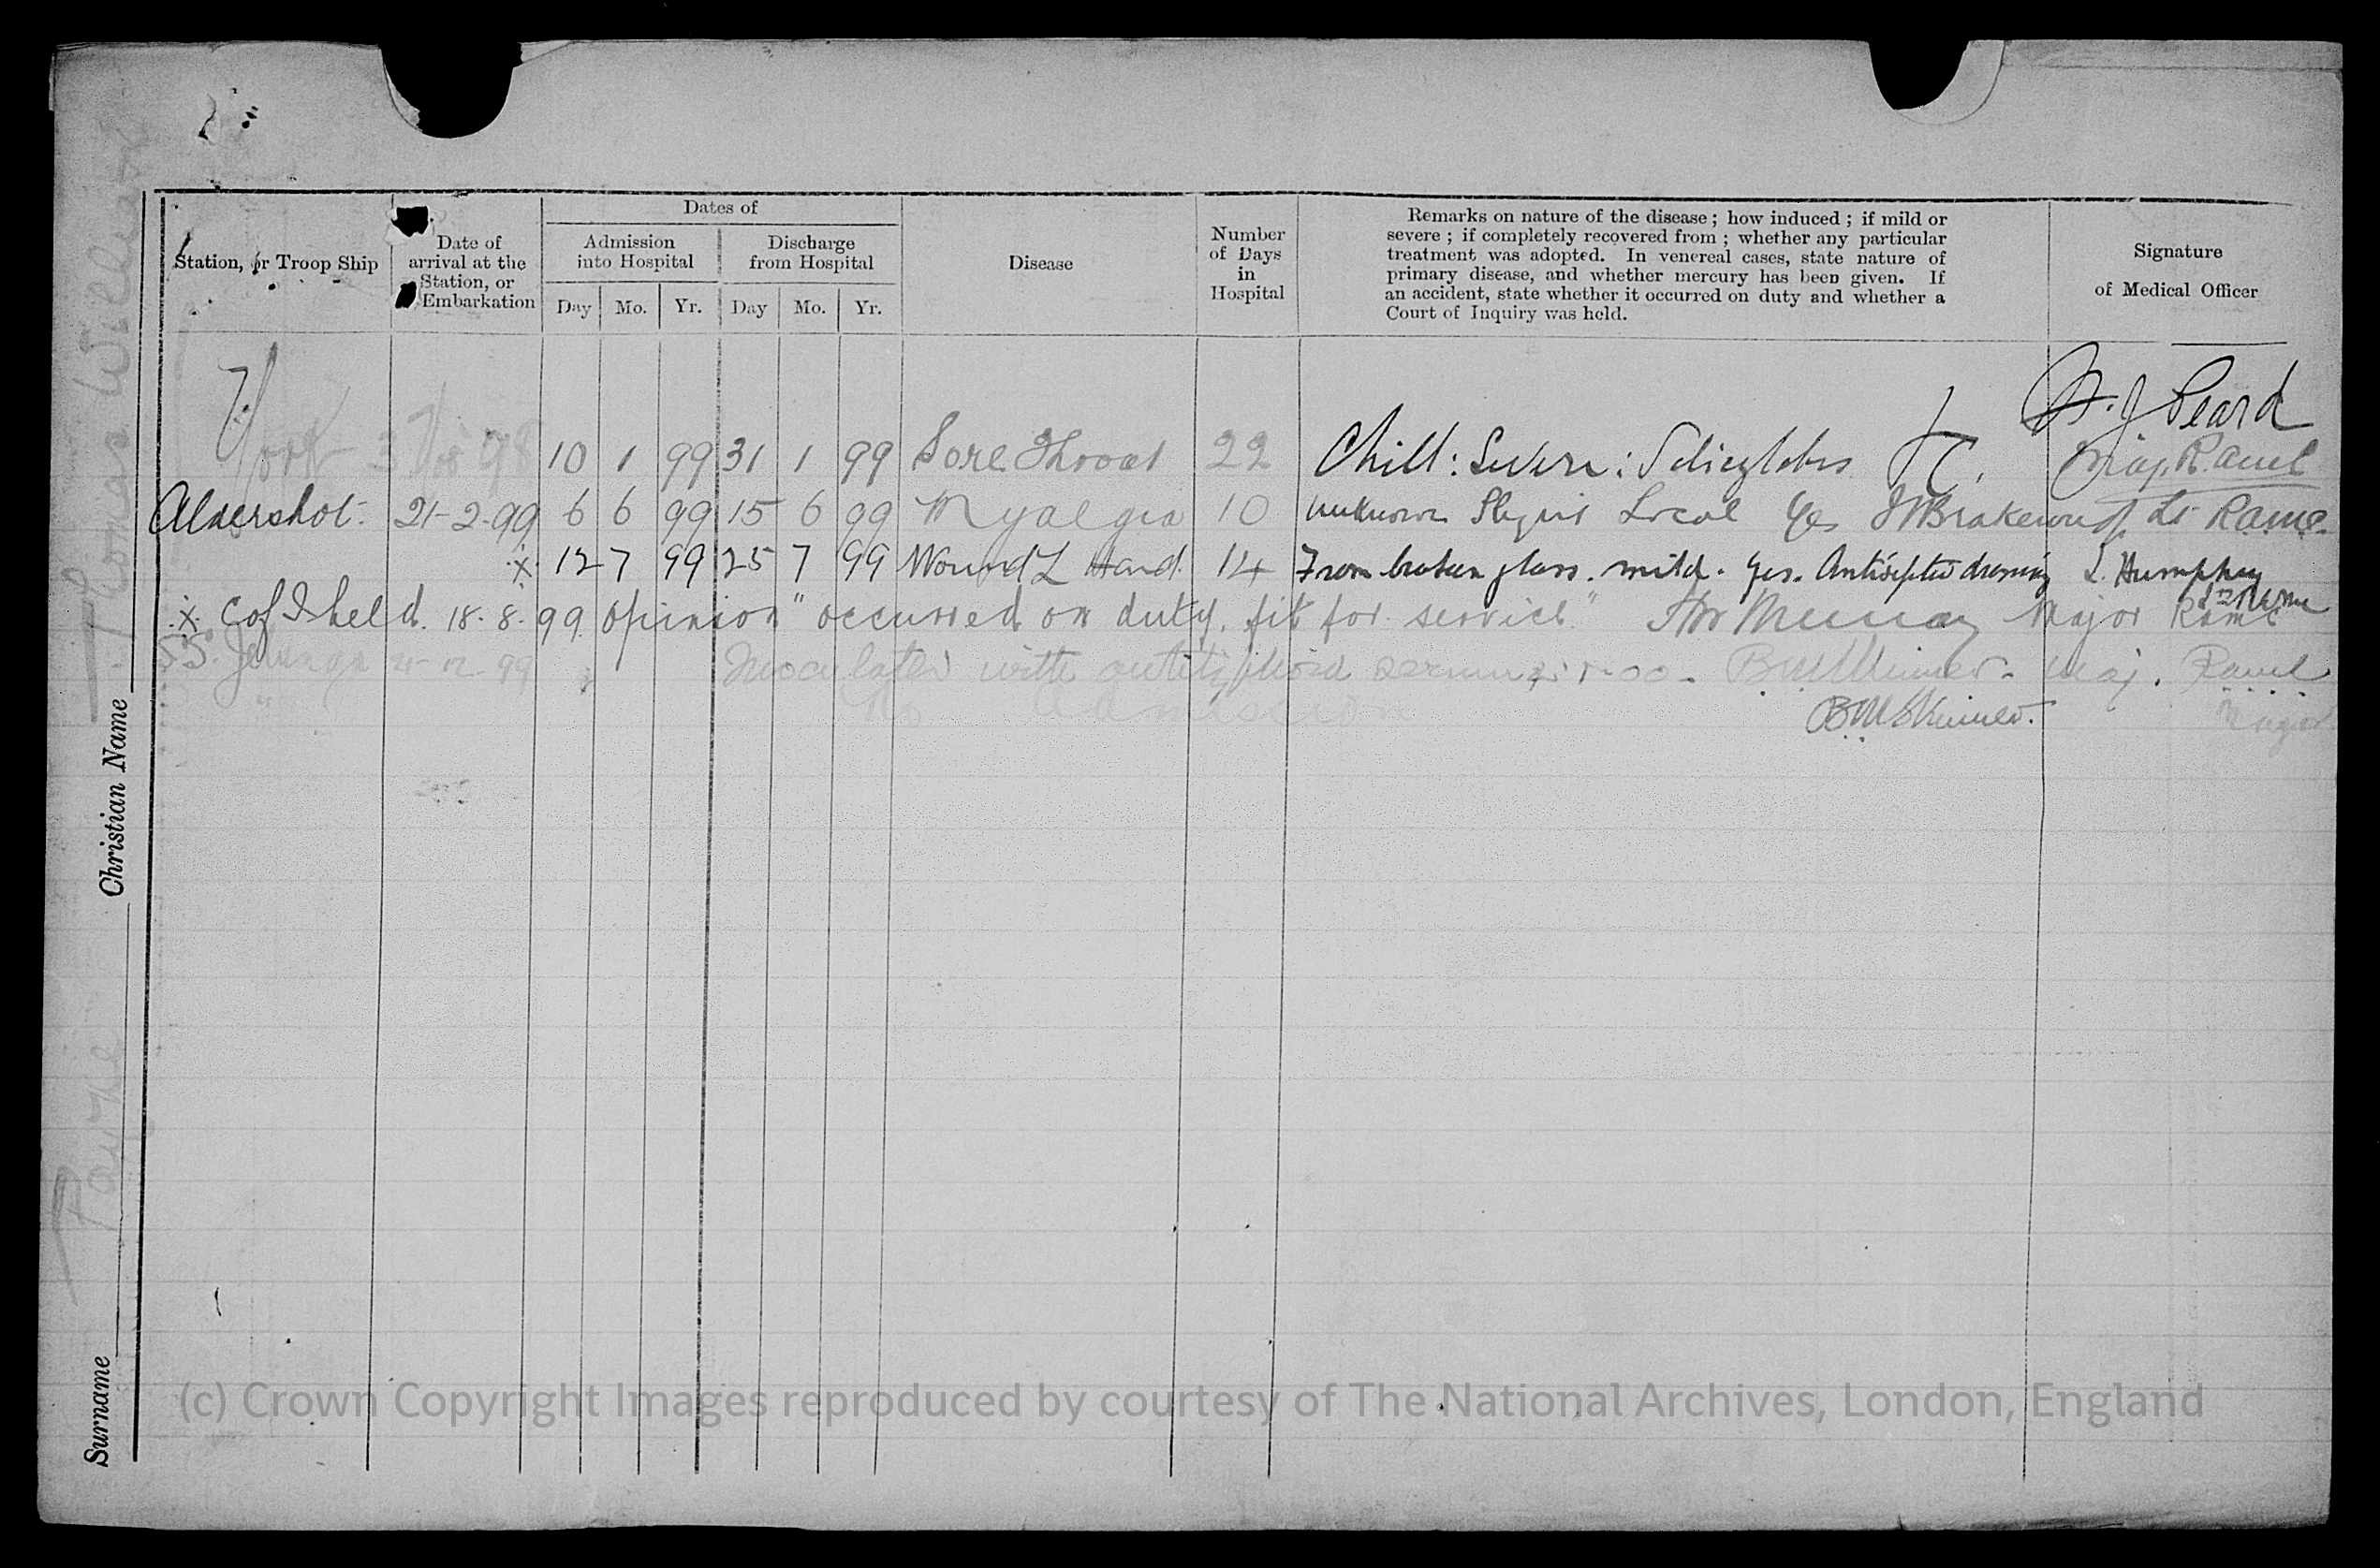 Dates of
Station, or Troop Ship
Date of
arrival at the
Station, or
Embarkation
Admission
into Hospital
Discharge
from Hospital
Day Mo. Yr. Day Mo. Yr.
Disease
Number
of Days
in
Hospital
Remarks on nature of the disease ; how induced ; if mild or
severe ; if completely recovered from ; whether any particular
treatment was adopted. In venereal cases, state nature of
primary disease, and whether mercury has been given. If
an accident, state whether it occurred on duty and whether a
Court of Inquiry was held.
Signature
of Medical Officer
York 98 10 1 99 31 1 99 Sore Throat 22 Chill : Severe : J Peard
Maj. R.amc
Aldershot 21-2-99 6 6 99 15 6 99 Myalgia 10 unknown Slight Local Yes Lt RAMC
x 12 7 99 25 7 99 Wound L Hand 14 From broken glass. mild. Yes. Antiseptic dressing L. Humphry
x C of I held. 18-8-99 opinion "occurred on duty. fit for service." Murray Major RAMC
SS. 99 Inoculated with antityphoid serum 00 - Skinner. Maj. Ramc
" No admission BM Skinner. Major
Surname Payne Christian Name Thomas William
(c) Crown Copyright Images reproduced by courtesy of The National Archives, London, England